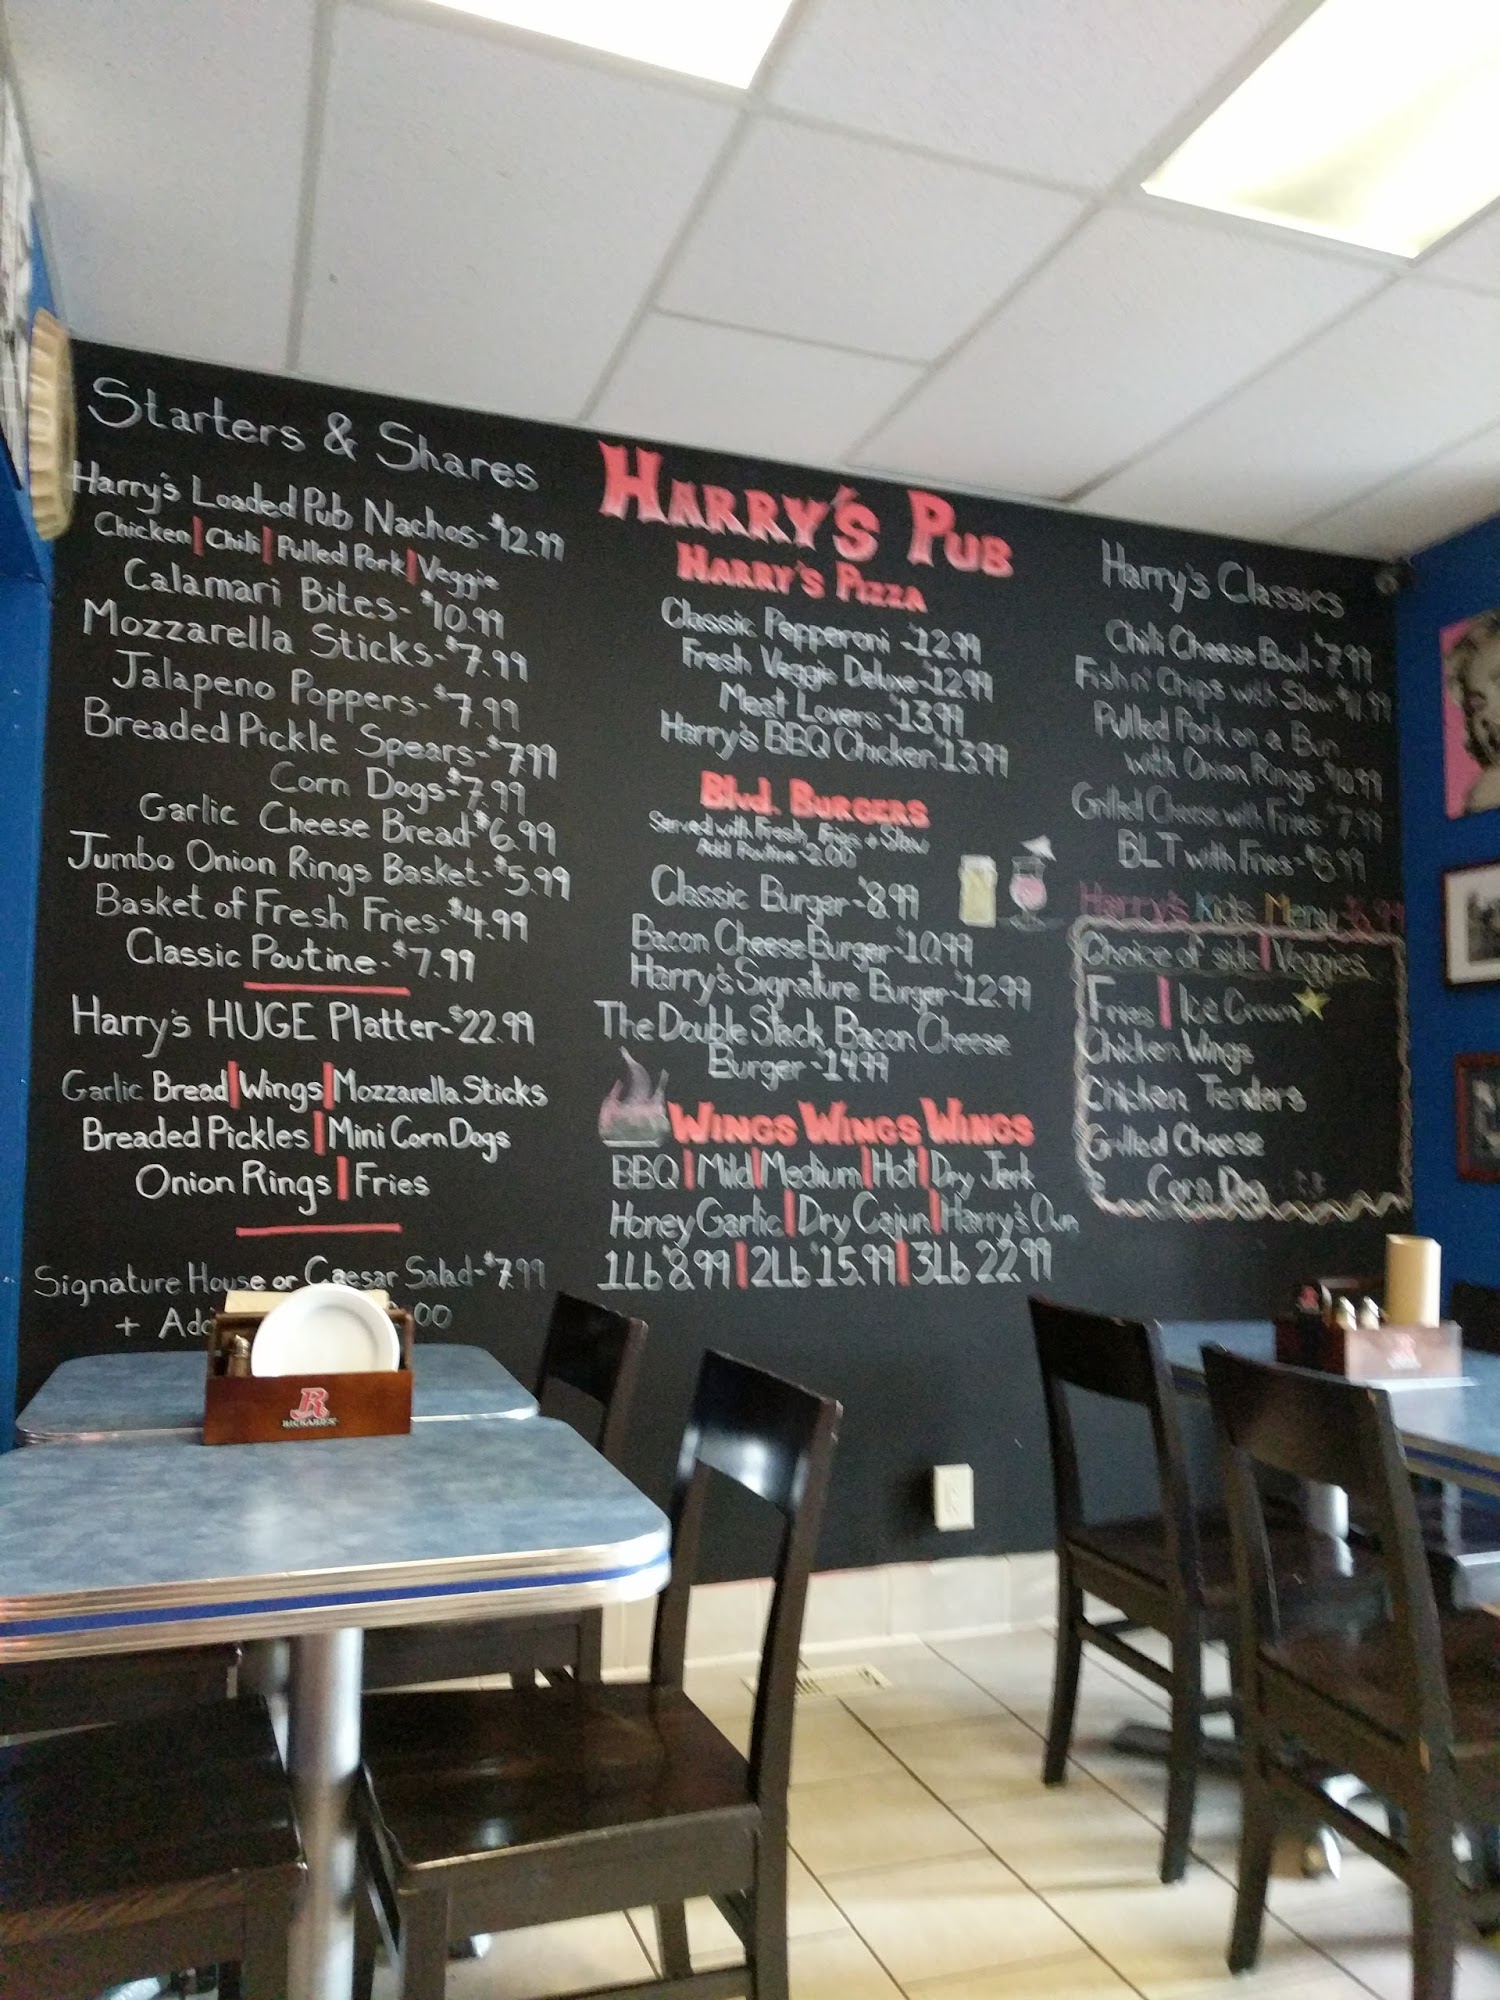 Starters & Shares
Harry's Loaded Pub Nachos-$12.99
Chicken|Chili|Pulled Pork|Veggie
Calamari Bites-$10.99
Mozzarella Sticks-$7.99
Jalapeno Poppers-$7.99
Breaded Pickle Spears-$7.99
Corn Dogs-$7.99
Garlic Cheese Bread-$6.99
Jumbo Onion Rings Basket-$5.99
Basket of Fresh Fries-$4.99
Classic Poutine-$7.99
Harry's HUGE Platter-$22.99
Garlic Bread|Wings|Mozzarella Sticks
Breaded Pickles|Mini Corn Dogs
Onion Rings|Fries
Signature House or Caesar Salad-$7.99
+ Ad 00
HARRY'S PUB
HARRY'S PIZZA
Classic Pepperoni -$12.99
Fresh Veggie Deluxe-$12.99
Meat Lovers-$13.99
Harry's BBQ Chicken $13.99
Blvd. BURGERS
Served with Fresh Fries + Slaw
Add Poutine-2.00
Classic Burger-$8.99
Bacon Cheese Burger-$10.99
Harry's Signature Burger-$12.99
The Double Stack Bacon Cheese
Burger-$14.99
WINGS WINGS WINGS
BBQ|Mild|Medium|Hot|Dry Jerk
Honey Garlic|Dry Cajun|Harry's Own
1Lb $8.99|2Lb $15.99|3Lb 22.99
Harry's Classics
Chili Cheese Bowl-$7.99
Fish n' Chips with Slaw $11.99
Pulled Pork on a Bun
with Onion Rings-$10.99
Grilled Cheese with Fries-$7.99
BLT with Fries-$8.99
Harry's Kids Menu $6.99
Choice of side|Veggies
Fries|Ice Cream
Chicken Wings
Chicken Tenders
Grilled Cheese
Corn Dog
R
RICKARD'S